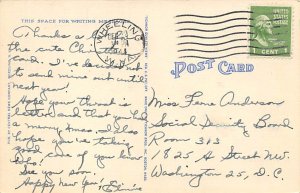 THIS SPACE FOR WRITING
Thanks a
the cute Ch
card. I've decided not
to send mine out until
next year!
Hope your throat is
better and that you had
a merry Xmas. I also
hope you're taking
good care of you know
who.
See you soon.
Happy new Year! Elsie
WHEELING
W.VA.
1¢
1 CENT 1
POST CARD
Miss Fern Anderson
Social Security Board
Room 313
1825 H Street NW.
Washington 25, D.C.